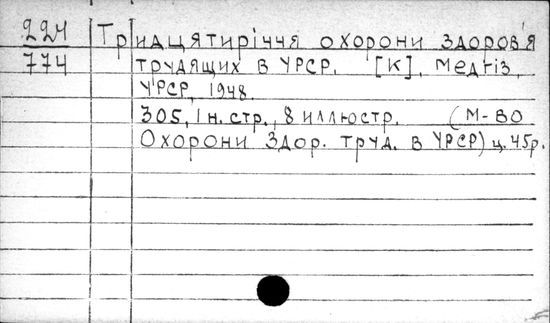 224 Тридцятиріччя охорони здоров'я
774 трудящих в УРСР. [К], Медгіз
УРСР, 1948.
305, 1 н. стр., 8 иллюстр. (М-во
Охорони Здор. труд. в УРСР) ц. 45р.